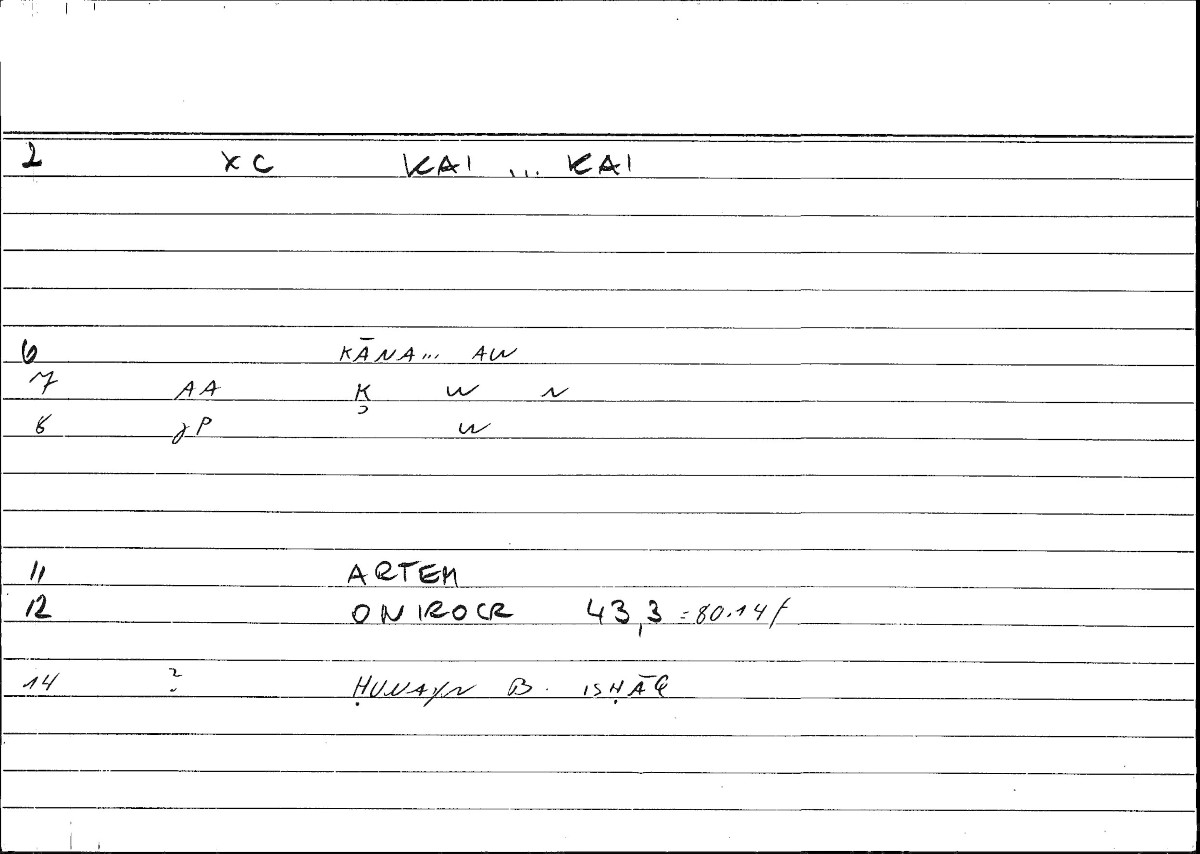 2 XC KAI ... KAI
6 KĀNA... AW
7 AA Ḳ W N
8 γP W
11 ARTEM
12 ONIROCR 43,3 =80.14f
14 ? ḤUNAYN B. ISḤĀQ